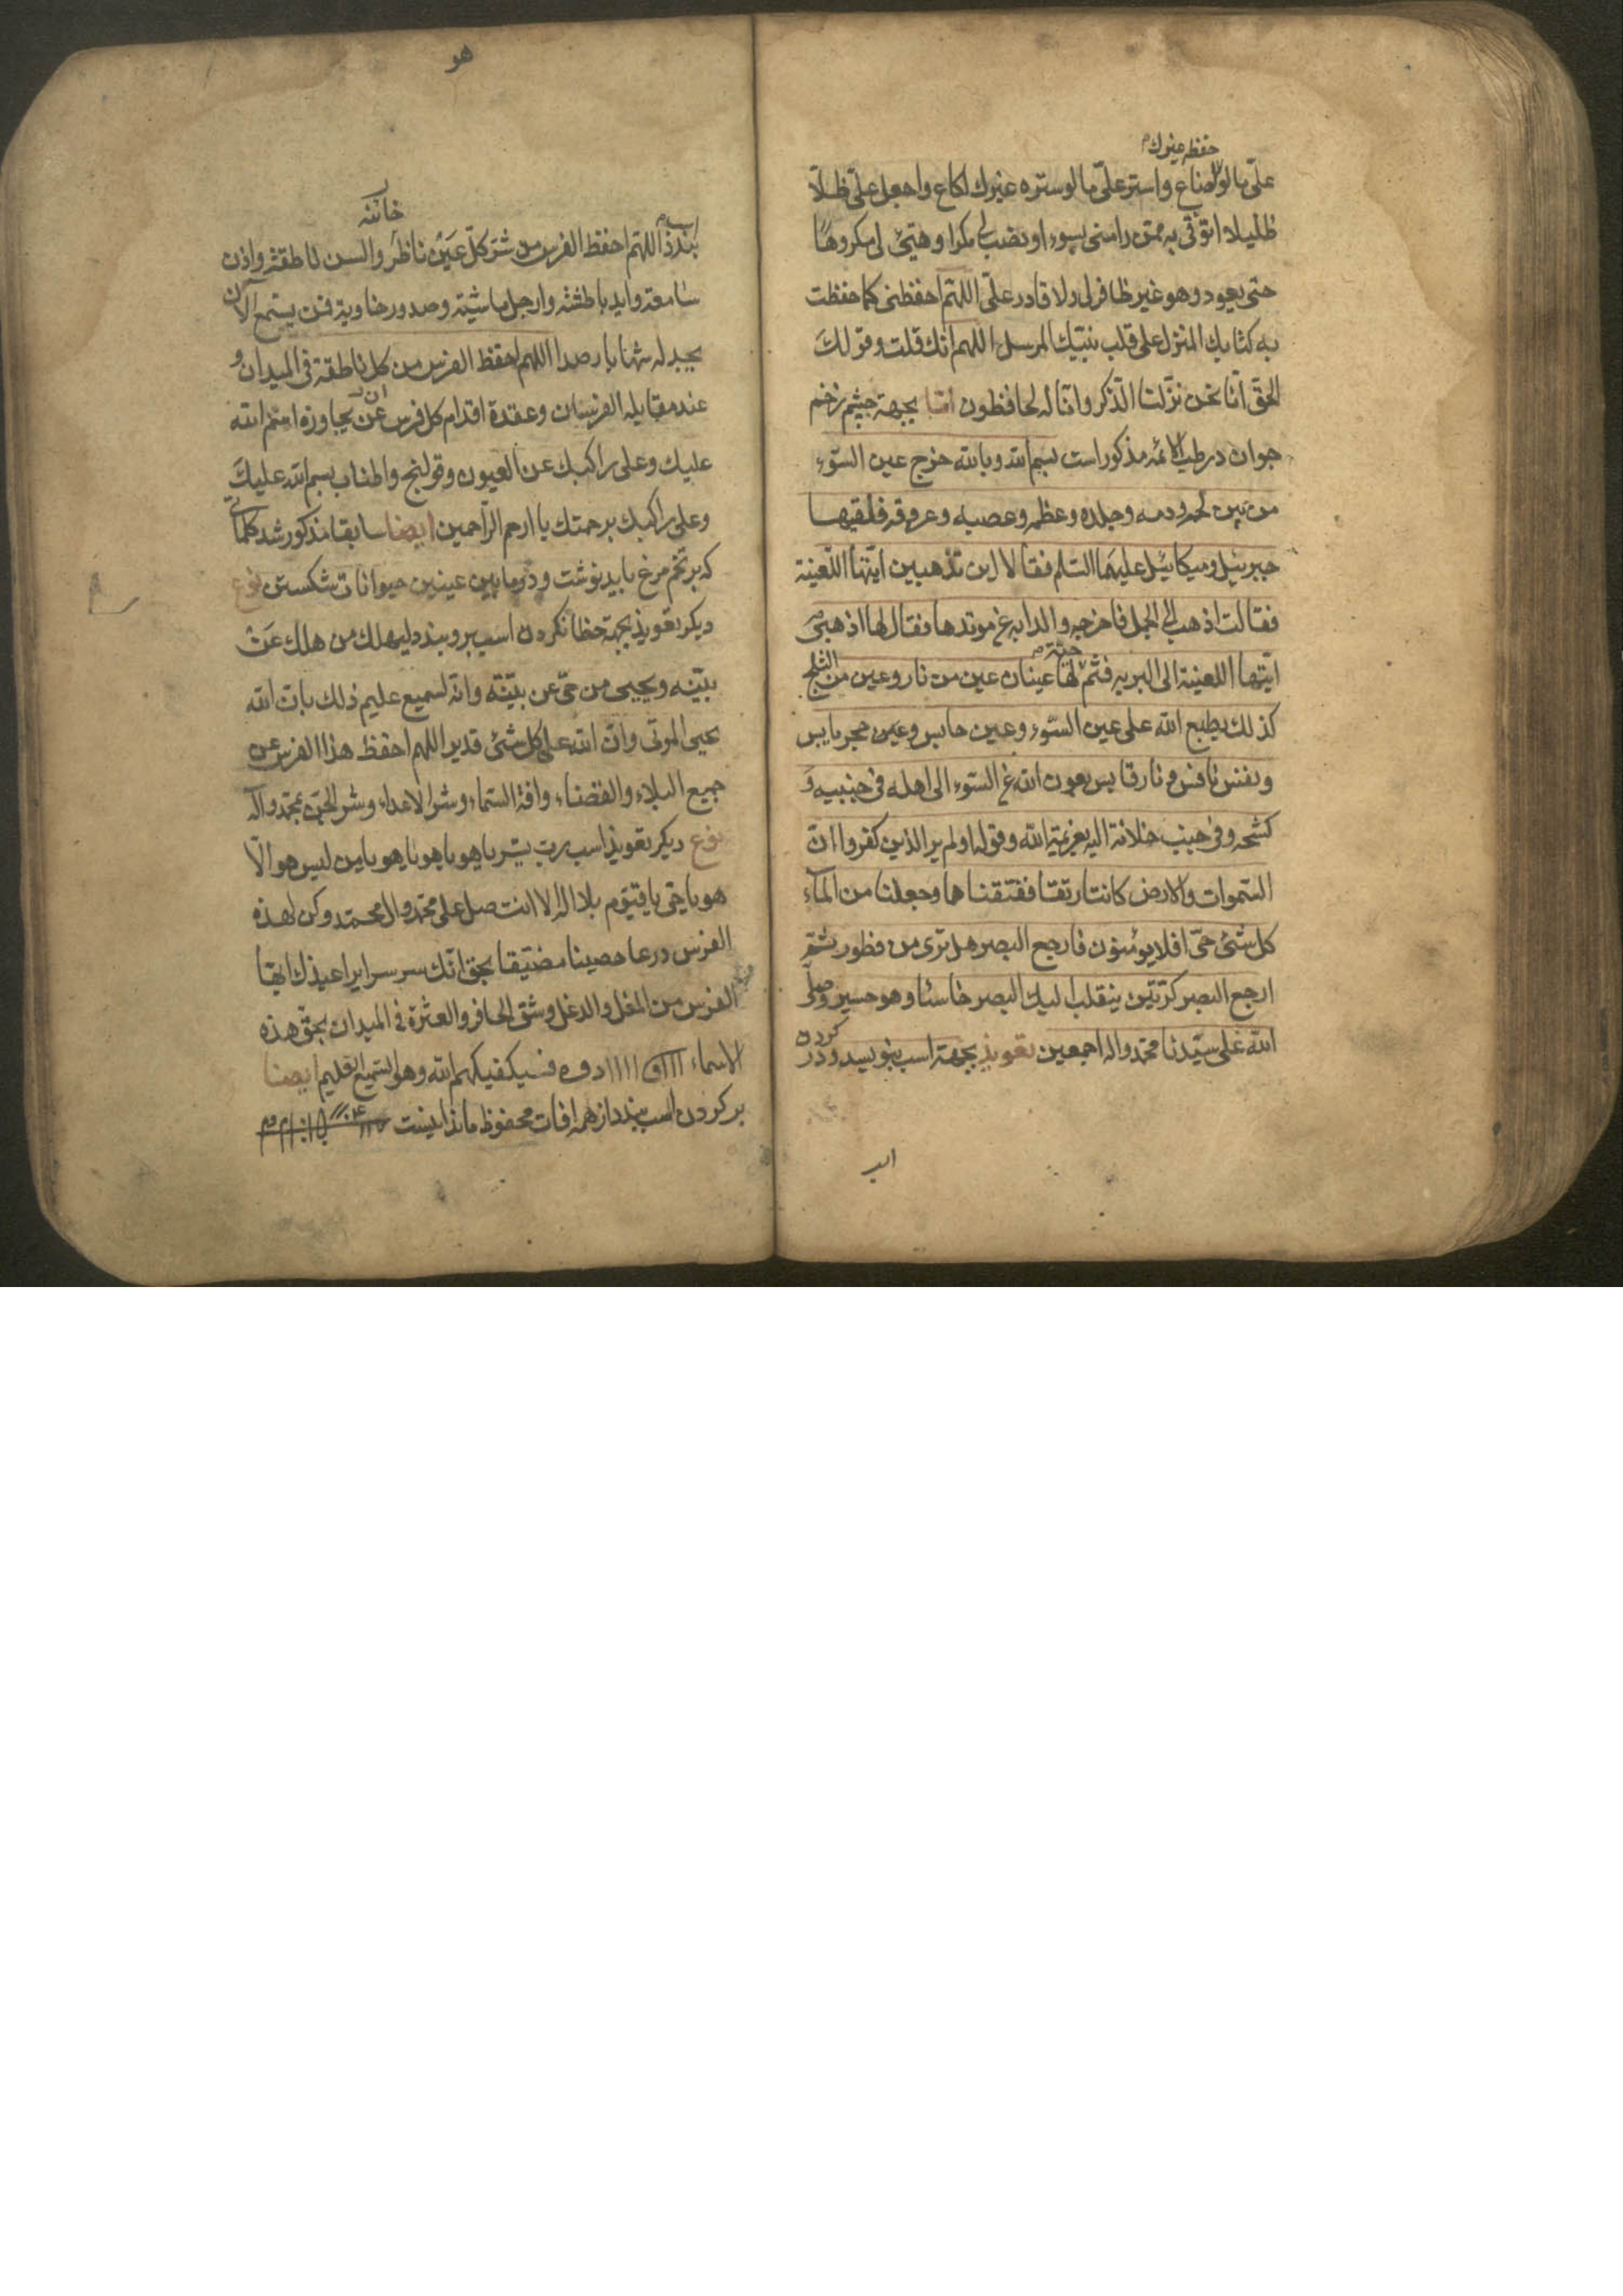 حفظه غيرك
علىّ ما لو لضاع واستر علىّ ما لو ستره غيرك لكاع واجعل علىّ ظلّا
ظليلا اتوقى به ممن رامنى بسوء او نصب لى مكرا وهيّئ لى مكروها
حتى يعود وهو غير ظافر لى ولا قادر علىّ اللهمّ احفظنى كما حفظت
به كتابك المنزل على قلب نبيّك المرسل اللهم انك قلت وقولك
الحقّ انّا نحن نزّلنا الذّكر وانّا له لحافظون امّا بجهة چشم زخم
حيوان در طب الائمه مذكور است بسم الله وبالله خرج عين السّوء
من بين لحمه ودمه وجلده وعظمه وعصبه وعروقه فلقيها
جبرئيل وميكائيل عليهما السّلم فقالا لاين تذهبين ايّتها اللّعينة
فقالت اذهب الى الجمل فاخرجه والدابه غ موتدها فقال لها اذهبى
ايّتها اللعينة الى البريه فثمّ لها حيّة عينان عين من نار وعين من الثلج
كذلك يطبع الله على عين السّوء وعين حابس وعين حجر يابس
ونفس نافس ونار قابس بعون الله غ السّوء الى اهله فى جنبيه و
كشحه وفى جنب خلانه اليه بعزيمة الله وقوله اولم ير الذين كفروا انّ
السّموات والارض كانتا رتقا ففتقناهما وجعلنا من المآء
كل شئ حىّ افلا يومنون فارجع البصر هل ترى من فطور ثمّ
ارجع البصر كرّتين ينقلب اليك البصر خاسئا وهو حسير وصلّى
الله على سيّدنا محمّد واله اجمعين تعويذ بجهة اسب بنويسد ودر كردن
اسب
هو
اسب بندد اللهمّ احفظ الفرس من شرّ كلّ عين ناظر والسن ناطقة واذن
سامعة وايد باطشة وارجل ماشية وصدور خاوية فمن يستمع الآن
يجد له شهابا رصدا اللهم احفظ الفرس من كل ناطقة فى الميدان و
عند مقابله الفرسان وعقدة اقدام كل فرس عن ان يجاوزه اسم الله
عليك وعلى راكبك عن العيون وقولنج واطناب بسم الله عليك
وعلى راكبك برحمتك يا ارحم الرّاحمين ايضا سابقا مذكور شد كلماتى
كه بر تخم مرغ بايد نوشت ودر مابين عينين حيوانات شكستن نوع
ديكر تعويذ بجهة خطا نكردن اسب برو بندد ليهلك من هلك عن
بيّنه ويحيى من حىّ عن بيّنة وانّه لسميع عليم ذلك بانّ الله
يحيى الموتى وانّ الله على كل شئ قدير اللهم احفظ هذا الفرس عن
جميع البلاء والقضاء وافة السّماء وشر الاعداء وشر الجنّ بمحمّد واله
نوع ديكر تعويذ اسب ربّ يسّر يا هو يا هو يا هو يا من ليس هو الّا
هو يا حىّ يا قيّوم بلا اله الا انت صل على محمّد وال محمّد وكن لهذه
الفرس درعا حصينا مضيّقا بحق انّك سر سرايرا عيذك ايها
الفرس من المغل والدغل وشقّ الحافر والعثرة فى الميدان بحق هذه
الاسماء فسيكفيكهم الله وهو السّميع العليم ايضا
بر كردن اسب بندد از همه افات محفوظ ماند اينست